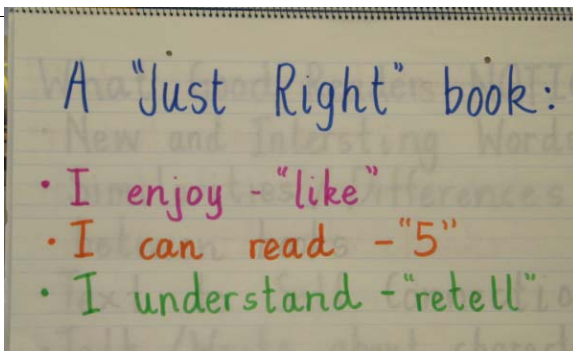 A "Just Right" book:
• I enjoy - "like"
• I can read - "5"
• I understand - "retell"